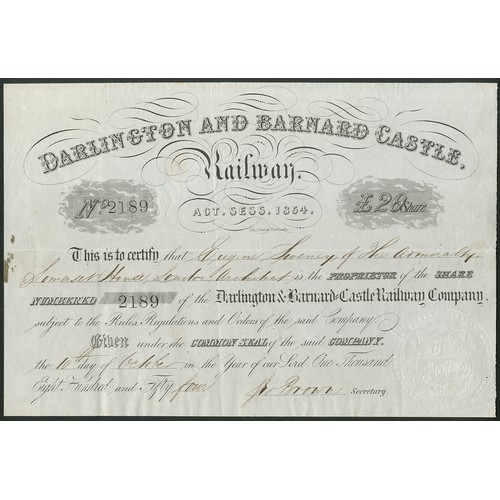 DARLINGTON AND BARNARD CASTLE.
Railway.
ACT. SESS. 1854.
Nº 2189
£20 Share
This is to certify that Eugene Sweny of the Admiralty
Somerset House London Architect is the PROPRIETOR of the SHARE
NUMBERED 2189 of the Darlington & Barnard-Castle Railway Company,
subject to the Rules, Regulations and Orders of the said Company
Given under the COMMON SEAL of the said COMPANY.
the 10th day of October in the Year of our Lord One Thousand
Eight Hundred and Fifty four
Brown Secretary